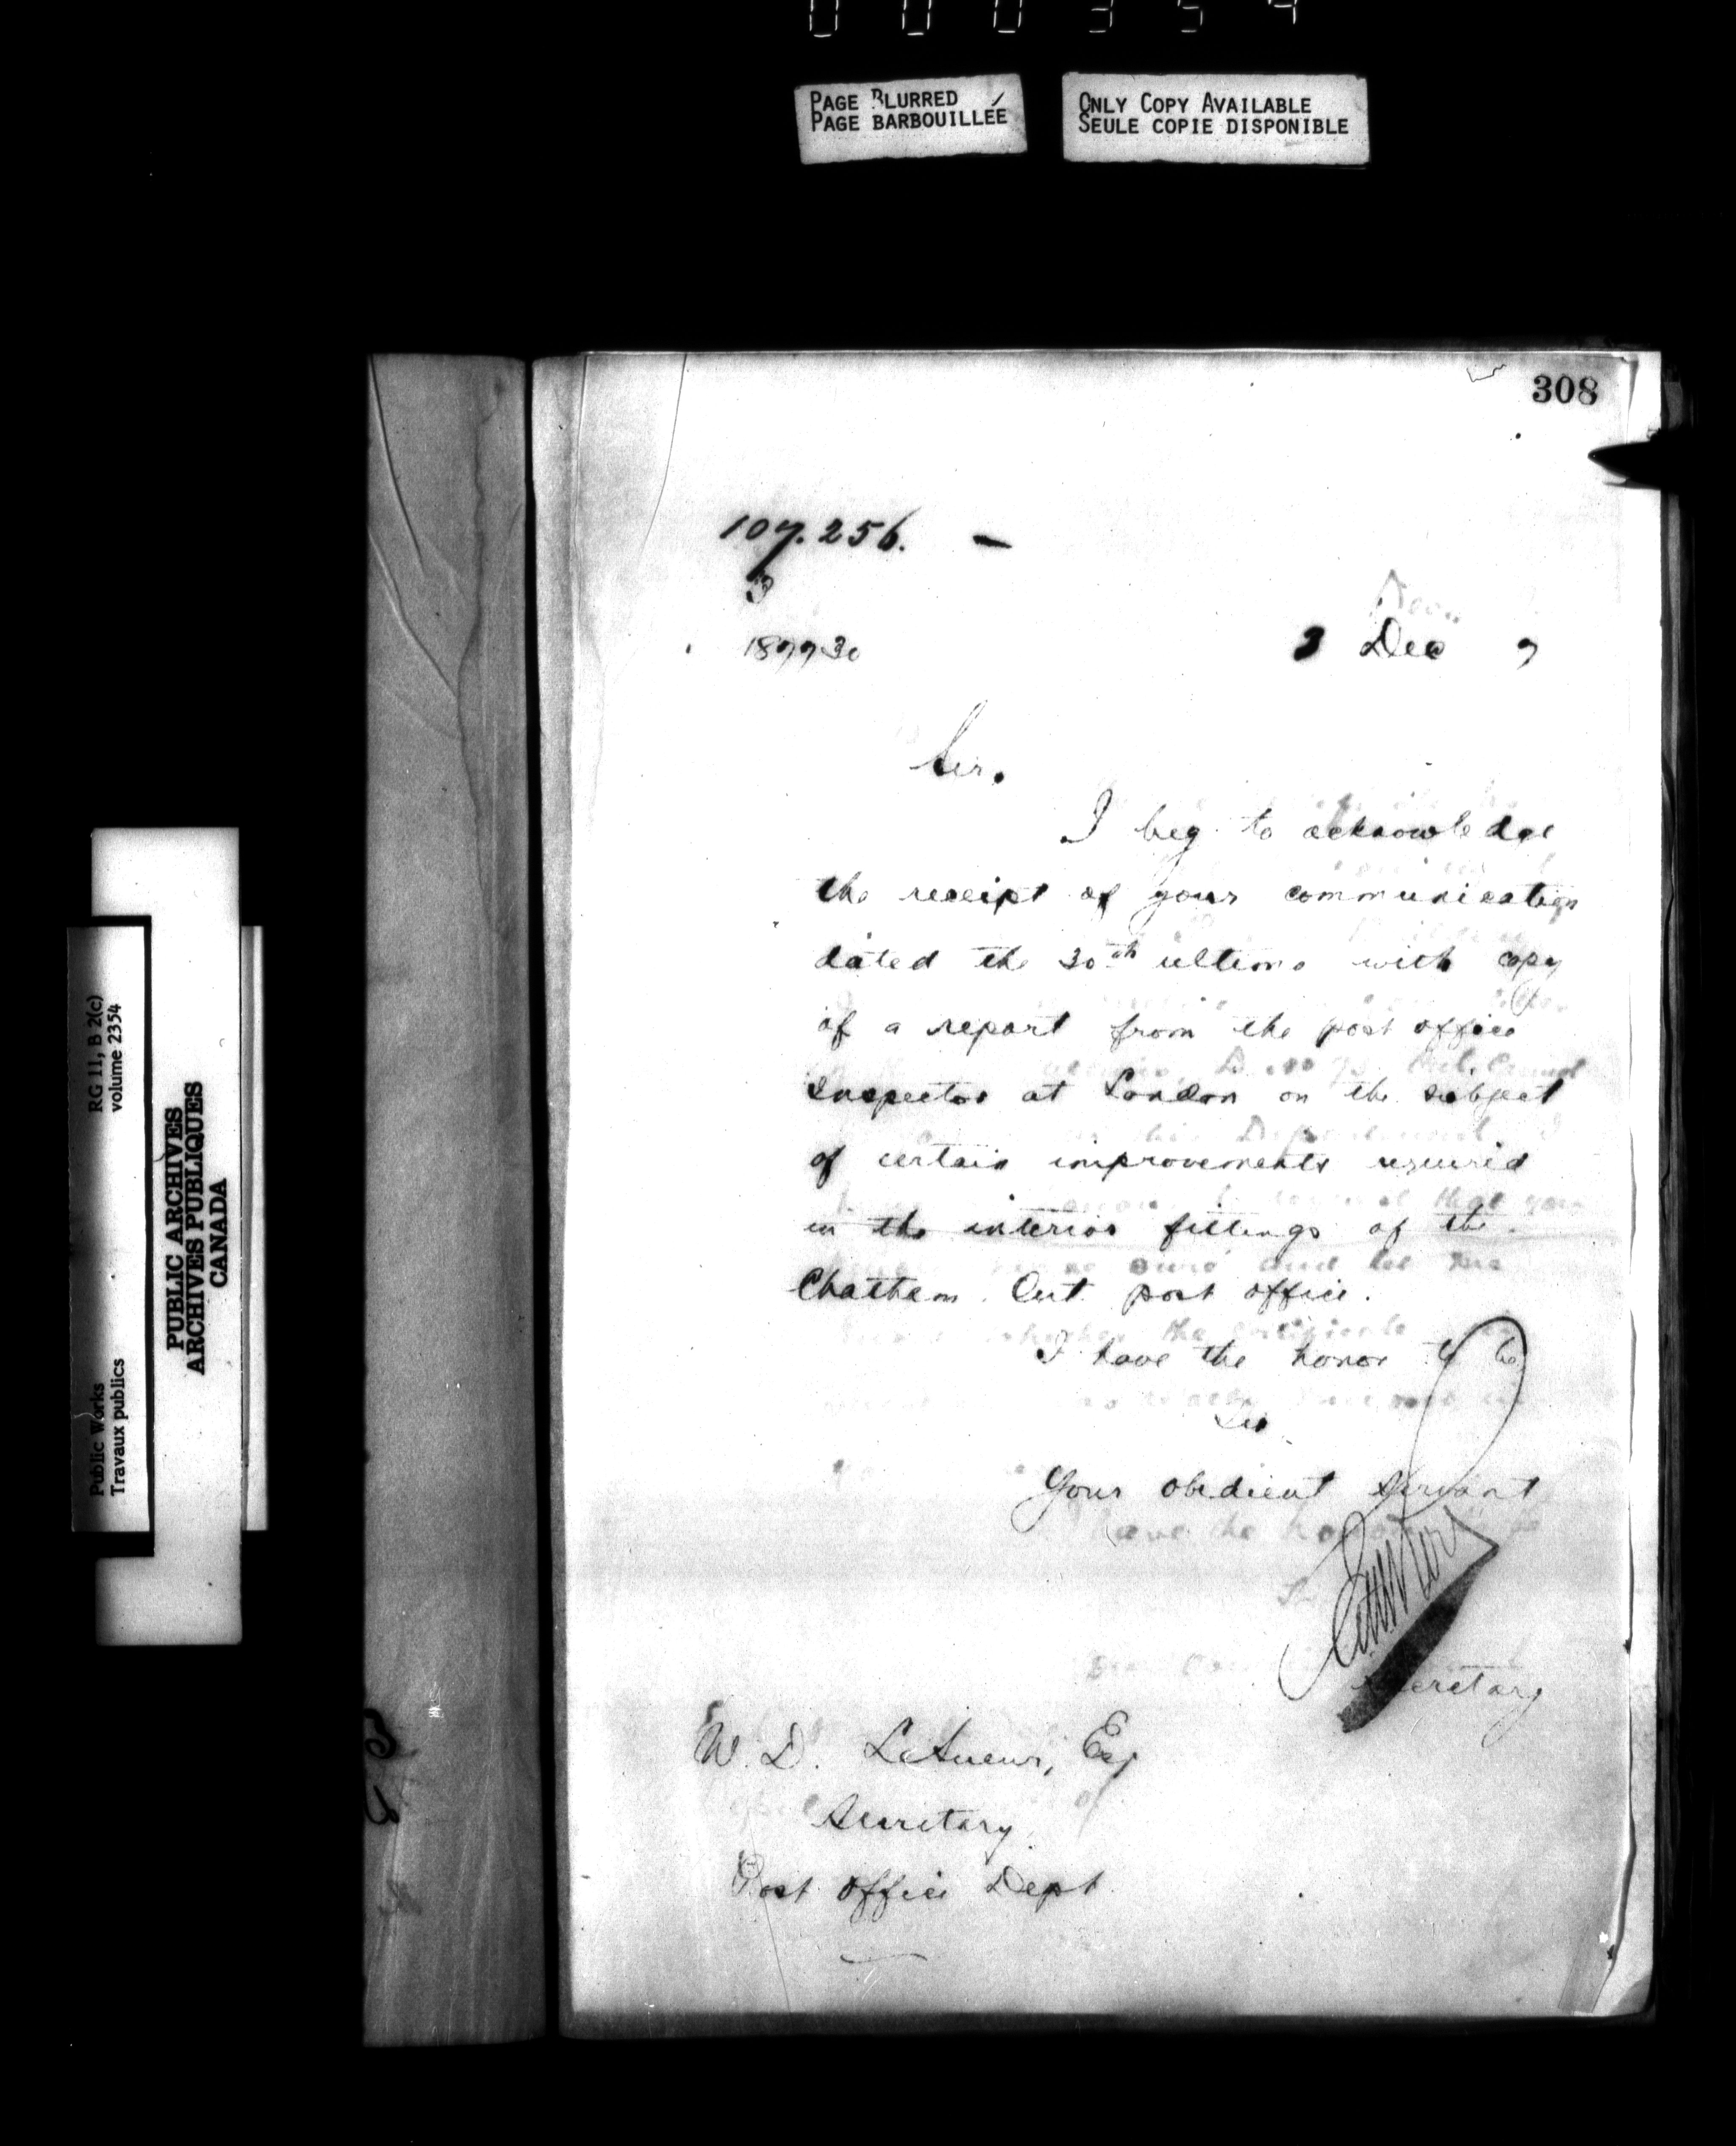 000354
PAGE BLURRED
PAGE BARBOUILLÉE
ONLY COPY AVAILABLE
SEULE COPIE DISPONIBLE
RG 11, B 2(c)
volume 2354
Public Works
Travaux publics
PUBLIC ARCHIVES
ARCHIVES PUBLIQUES
CANADA
308
107.256. —
3
187730
3 Dec 7
Sir.
I beg to acknowledge
the receipt of your communication
dated the 30th ultimo with copy
of a report from the post office
Inspector at London on the subject
of certain improvements required
in the interior fittings of the
Chatham Ont post office.
I have the honor to be
Sir
Your obedient servant
Secretary
W. D. LeSueur, Esq
Secretary
Post Office Dept